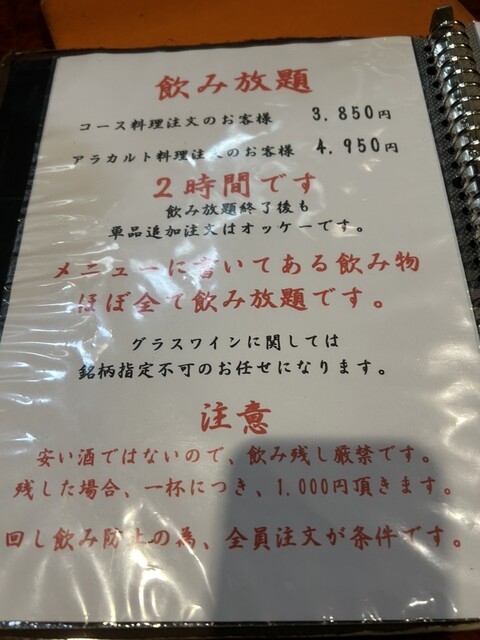 飲み放題
コース料理注文のお客様 3.850円
アラカルト料理注文のお客様 4.950円
2時間です
飲み放題終了後も
単品追加注文はオッケーです。
メニューに書いてある飲み物
ほぼ全て飲み放題です。
グラスワインに関しては
銘柄指定不可のお任せになります。
注意
安い酒ではないので、飲み残し厳禁です。
残した場合、一杯につき、1.000円頂きます。
回し飲み防止の為、全員注文が条件です。